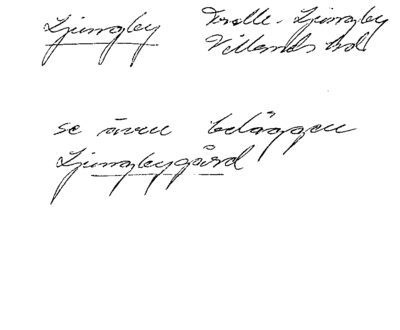 Ljungby
Trolle-Ljungby
Villands hd
se även beläggen
Ljungbygård